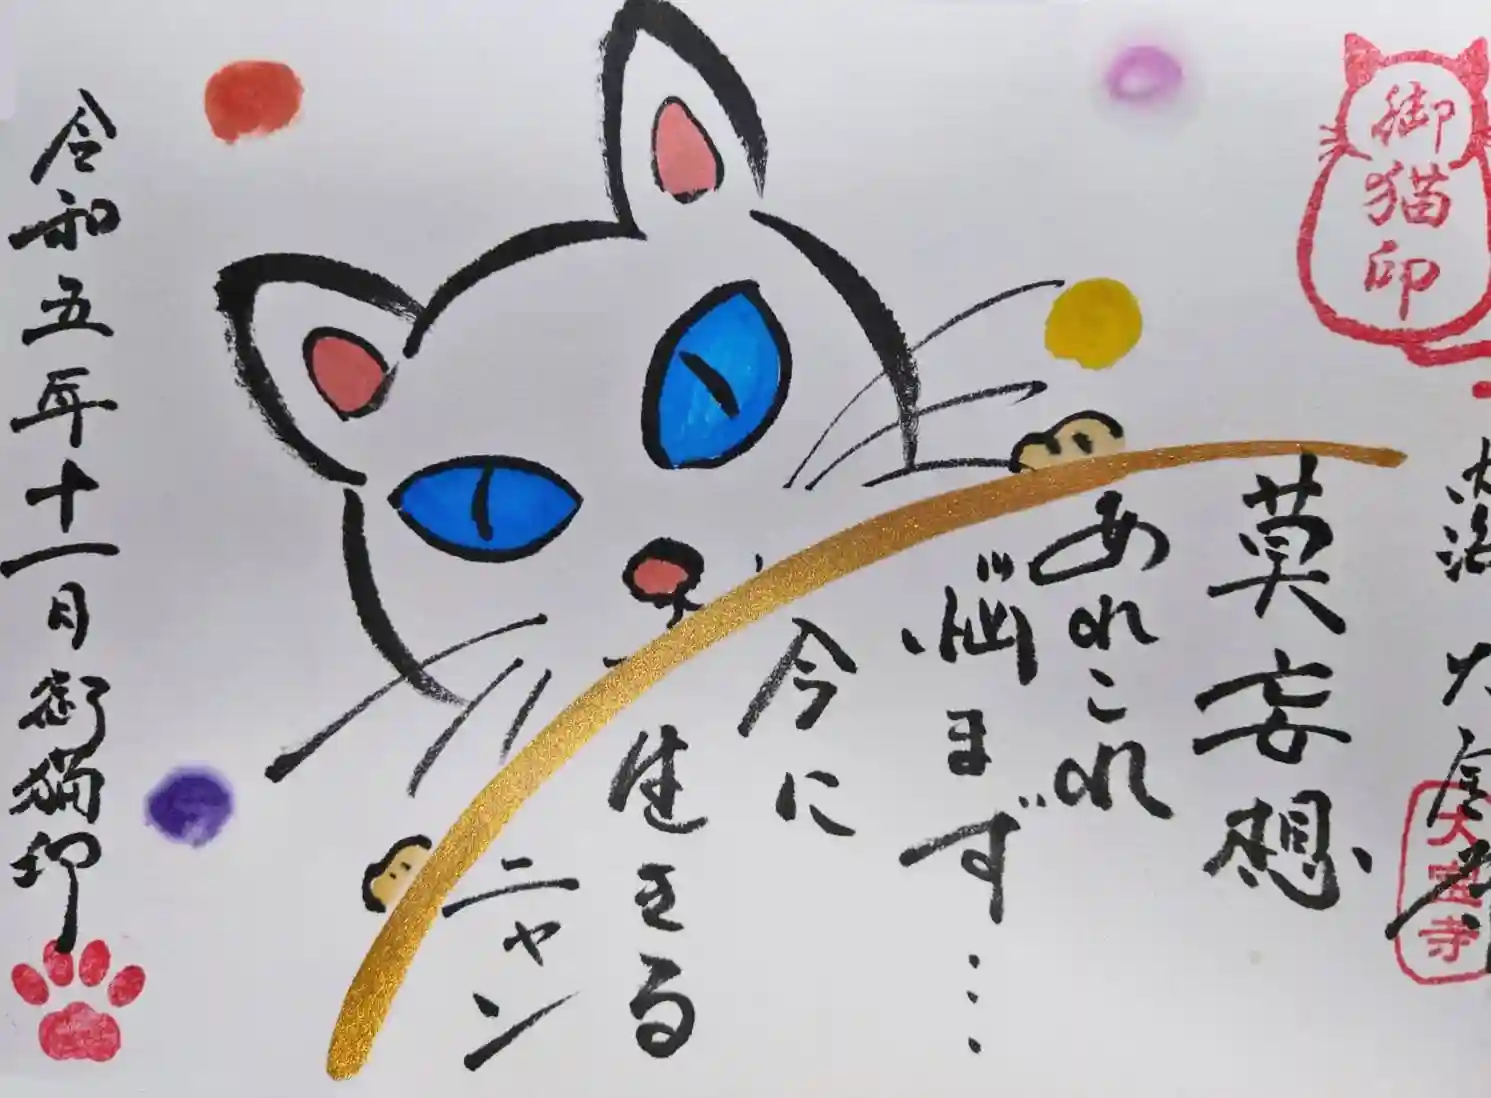 御
猫
印
大宝寺
莫妄想
あれこれ
悩まず…
今に
生きる
ニャン
令和五年十一月御猫印